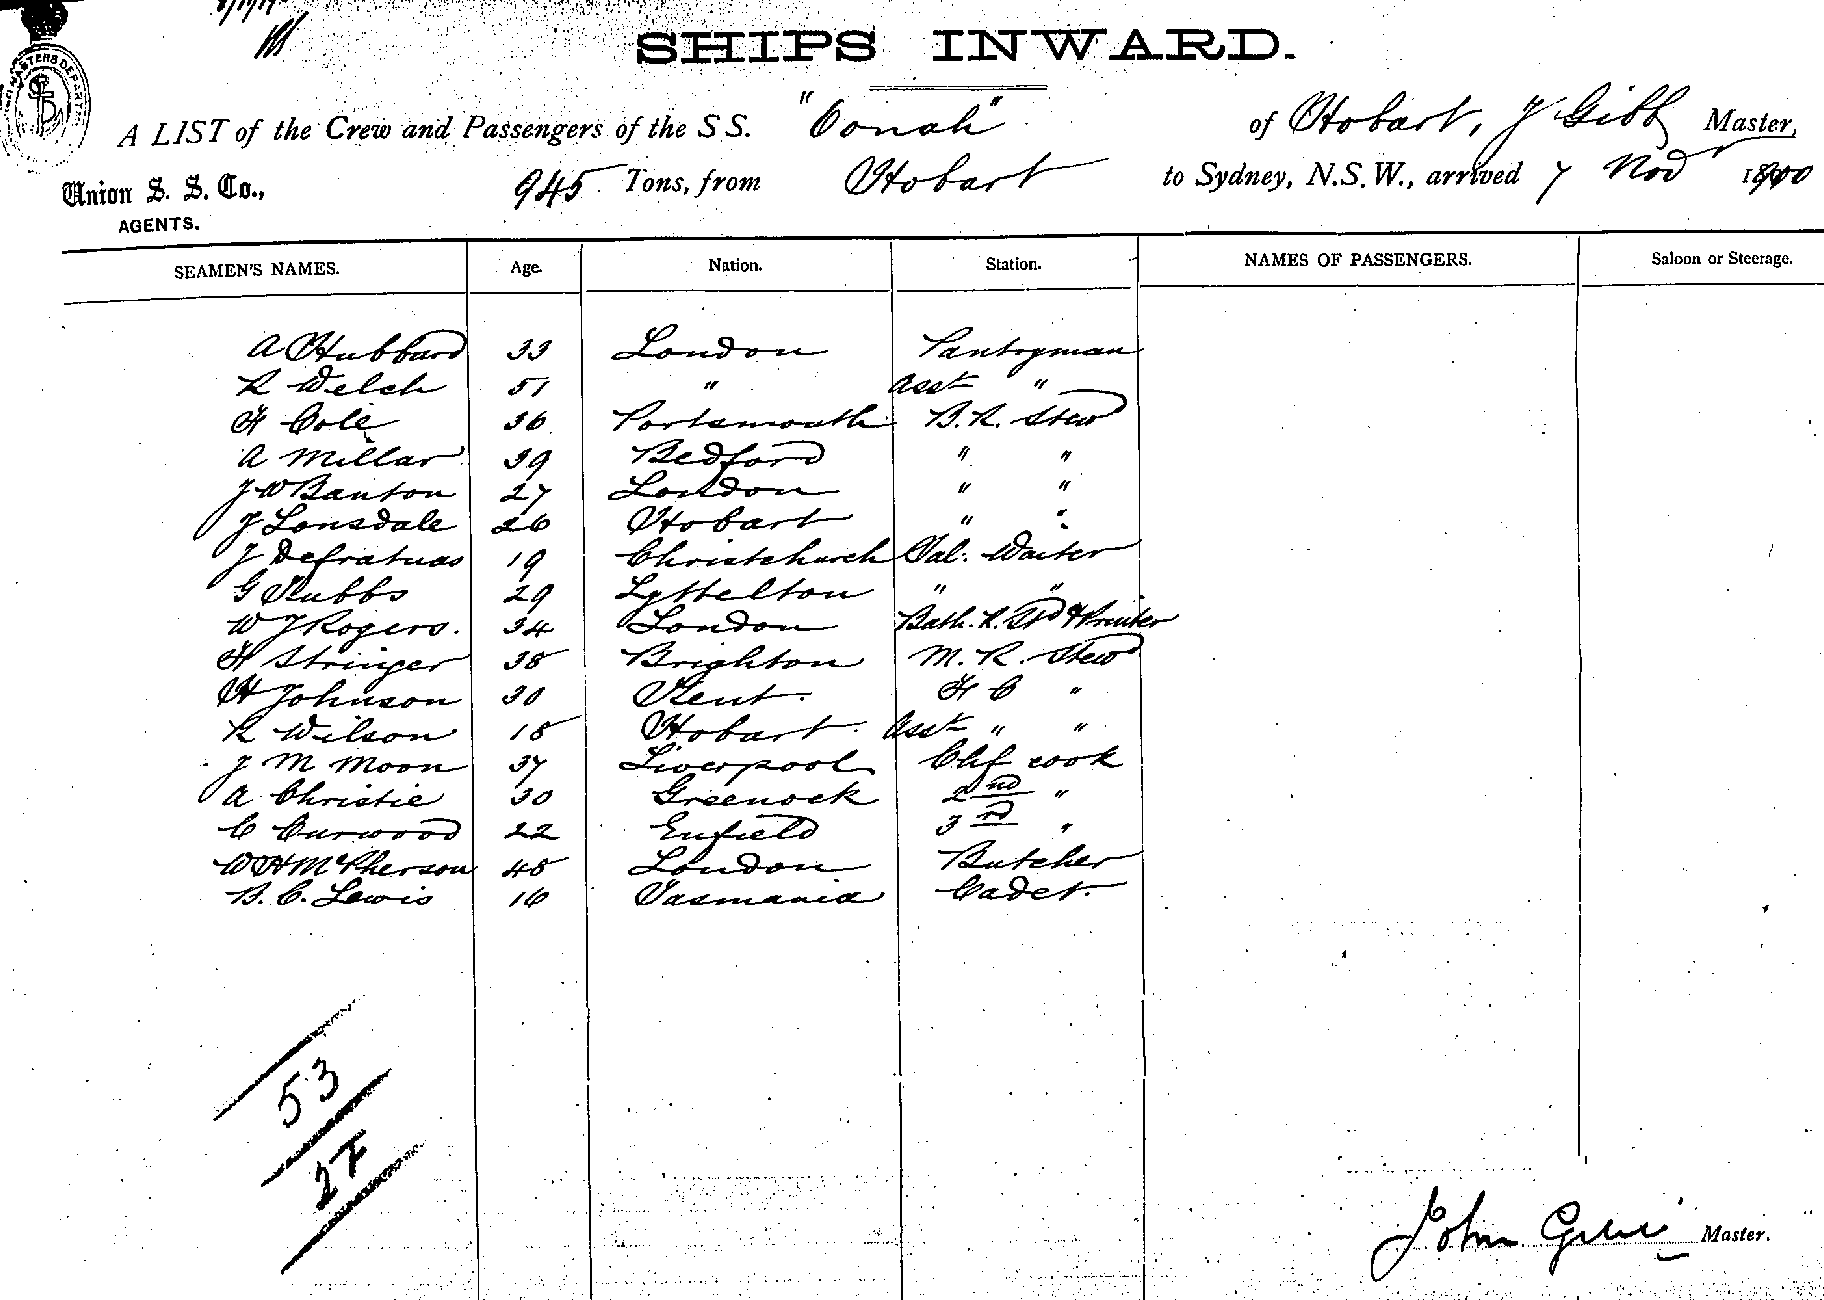 SHIPS INWARD.
A LIST of the Crew and Passengers of the S S. "Oonah" of Hobart, J Gibb Master,
Union S. S. Co., 945 Tons, from Hobart to Sydney, N.S.W., arrived 7 Nov 1900
AGENTS.
SEAMEN'S NAMES. Age. Nation. Station. NAMES OF PASSENGERS. Saloon or Steerage.
A Hubbard 33 London Pantryman
R Welch 51 " Asst "
H Cole 36 Portsmouth B.R. Stew
A Millar 39 Bedford " "
J W Banton 27 London " "
J Lonsdale 26 Hobart " "
J Defratuas 19 Christchurch Sal. Waiter
G Stubbs 29 Lyttelton " "
W J Rogers. 34 London Bath. R. Std & Printer
H Stringer 38 Brighton M. R. Stew
H Johnson 30 Kent. F C "
R Wilson 18 Hobart. Asst " "
J M Moon 37 Liverpool Chf cook
A Christie 30 Greenock 2nd "
C Curwood 22 Enfield 3rd "
W H McPherson 48 London Butcher
B. C. Lewis 16 Tasmania Cadet.
53
27
John Gibb Master.